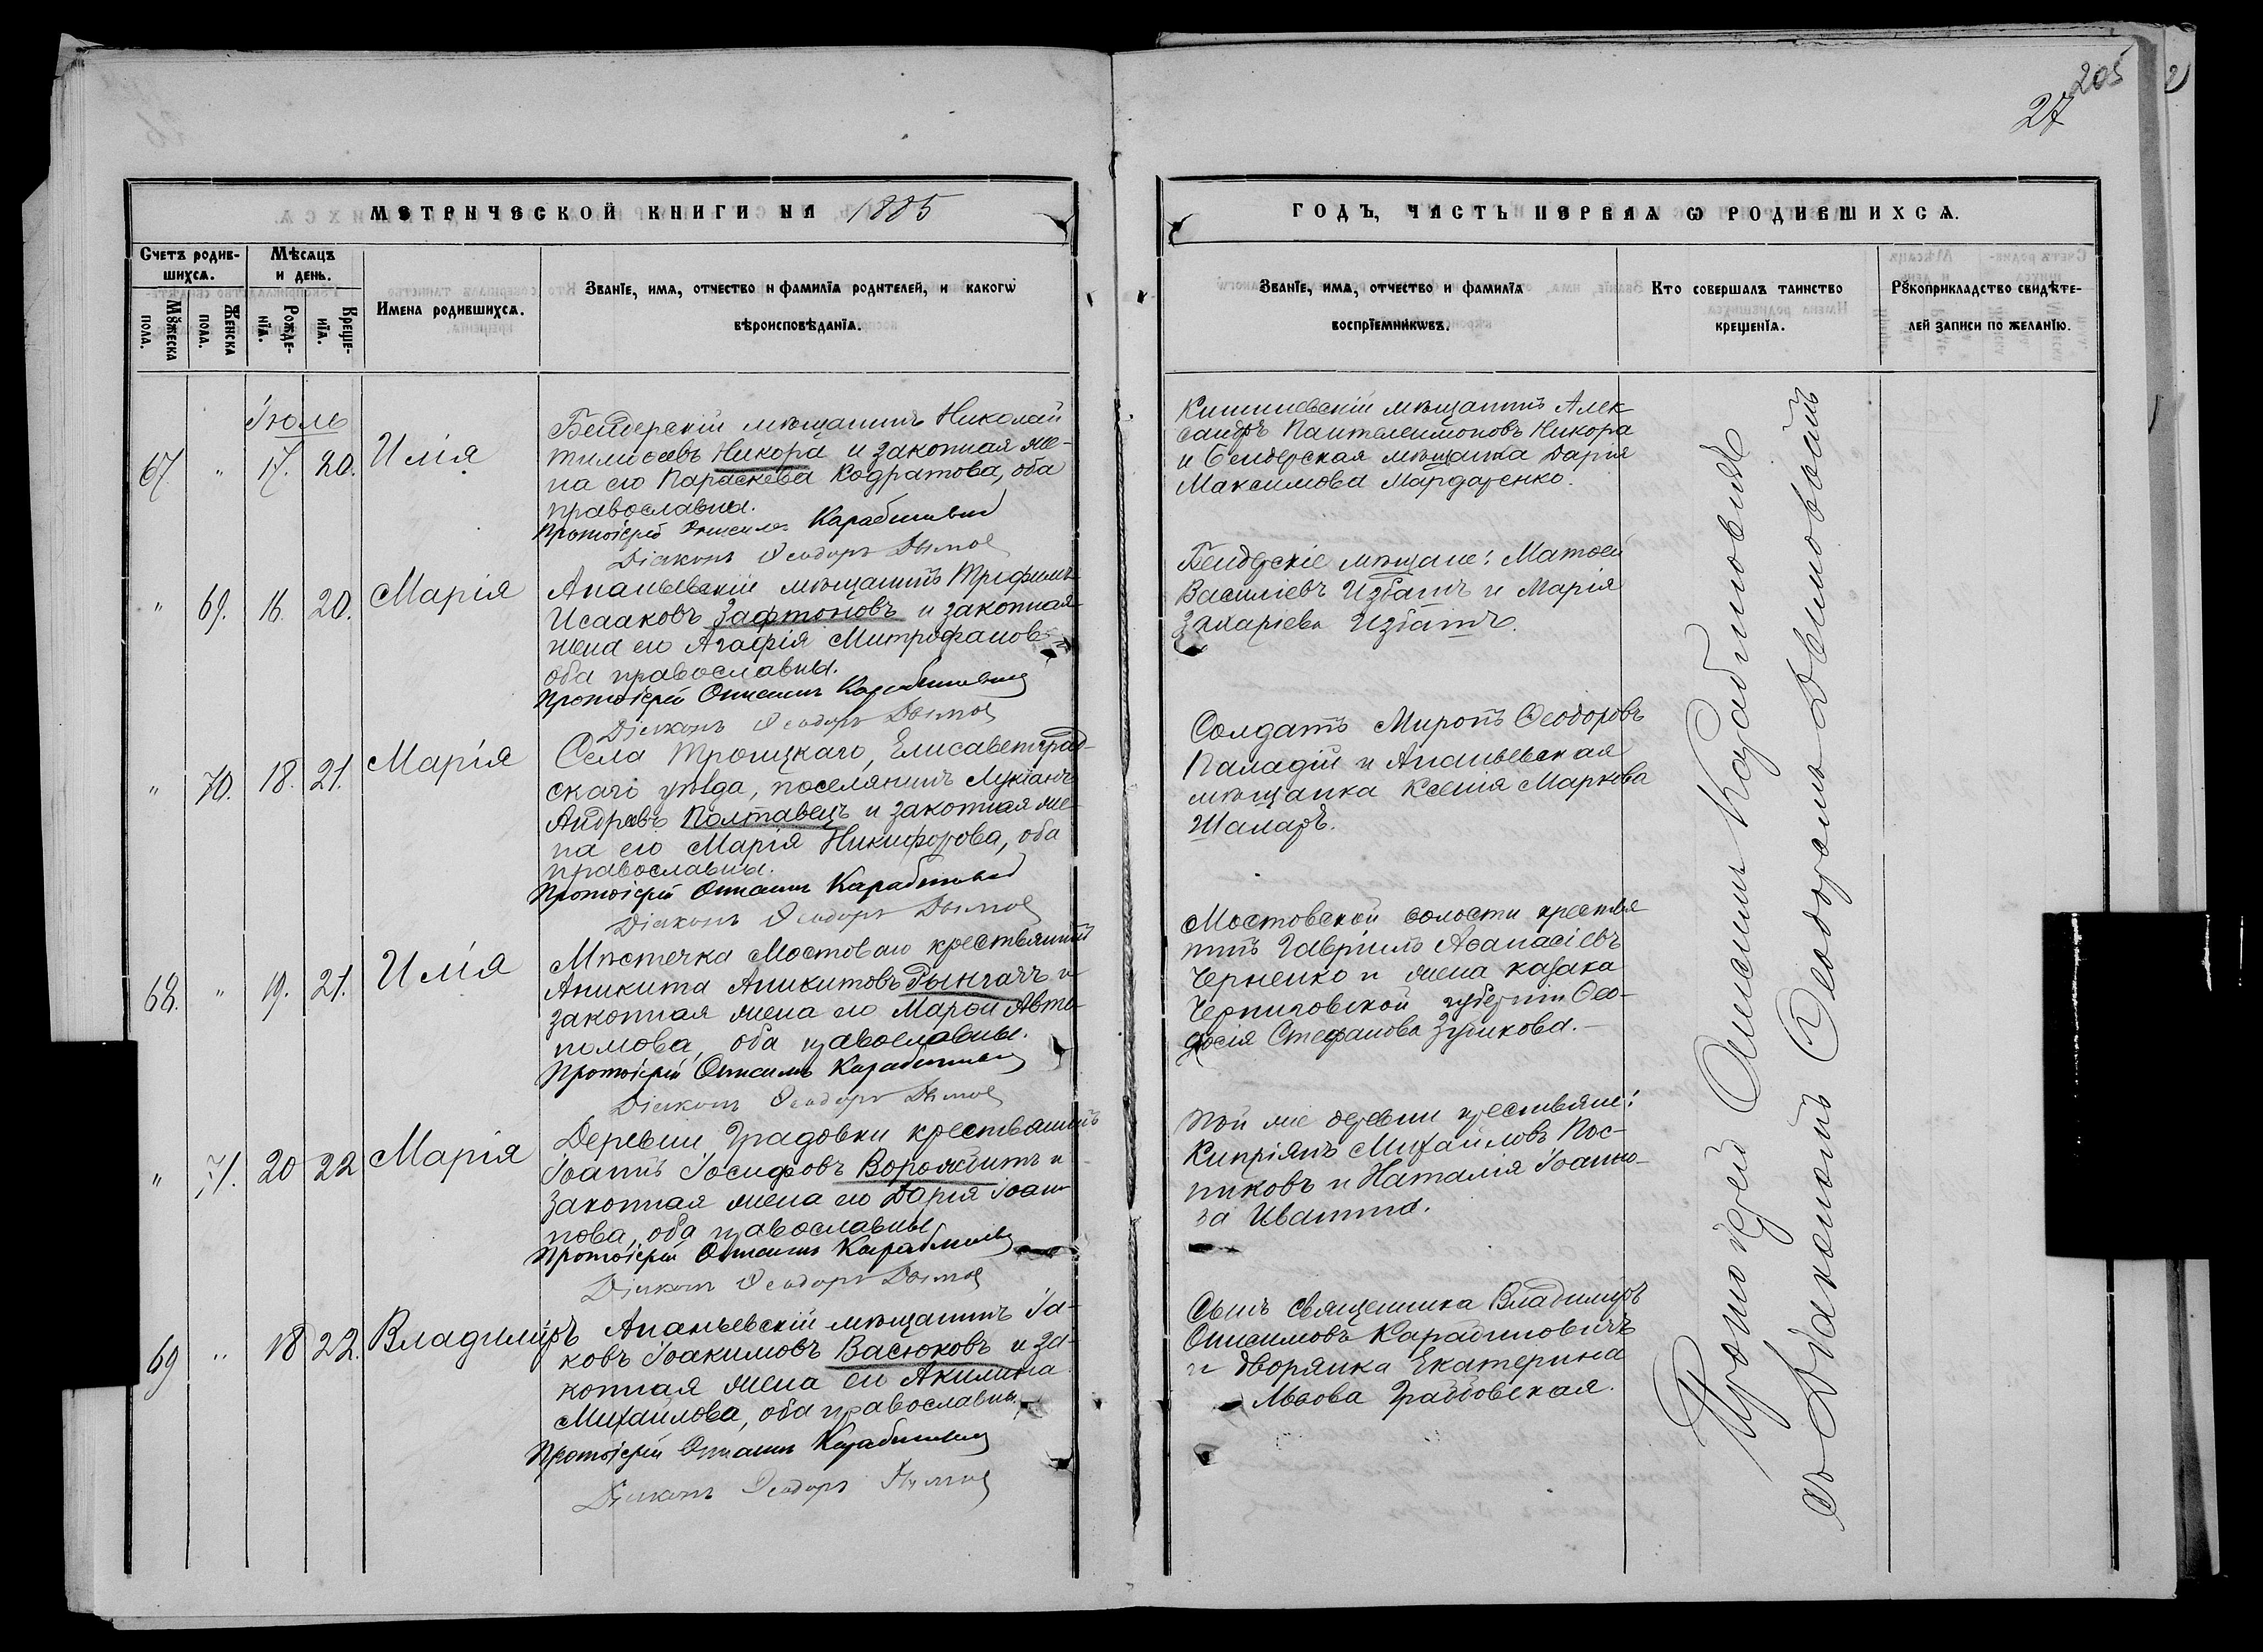 205
27
МЕТРИЧЕСКОЙ КНИГИ НА 1885
ГОДЪ, ЧАСТЬ ПЕРВАѦ Ѡ РОДИВШИХСѦ.
Счетъ родив-
шихсѧ.
Мѣсѧцъ
и день.
Мꙋжеска
пола.
Женска
пола.
Рожде-
нїѧ.
Креще-
нїѧ.
Имена родившихсѧ.
Званїе, имѧ, отчество и фамилїѧ родителей, и какогѡ
вѣроисповѣданїѧ.
Званїе, имѧ, отчество и фамилїѧ
воспрїемникѡвъ.
Кто совершалъ таинство
крещенїѧ.
Рꙋкоприкладство свидѣте-
лей записи по желанїю.
Іюль
67. " 17. 20. Илія
Бендерскій мѣщанинъ Николай
Никора и законная же-
на его Параскева Кодратова, оба
православны.
Протоіерей Карабиновичъ
Діаконъ Ѳеодоръ
Кишиневскій мѣщанинъ Алек
сандръ Пантелеимоновъ Никора
и Бендерская мѣщанка Дарія
Максимова Мардаренко.
" 69. 16. 20. Марія
Ананьевскій мѣщанинъ Трефилъ
Исааковъ Зафтоновъ и законная
жена его Агафія Митрофанова
оба православны.
Протоіерей Онисимъ Карабиновичъ
Діаконъ Ѳеодоръ
Бендерскіе мѣщане: Матѳей
Василіевъ Избашъ и Марія
Захаріева Избашъ.
" 70. 18. 21. Марія
Села Троицкаго, Елисаветград-
скаго уѣзда, поселянинъ Лукіанъ
Андреевъ Полтавецъ и законная же-
на его Марія Никифорова, оба
православны.
Протоіерей Онисимъ Карабиновичъ
Діаконъ Ѳеодоръ
Солдатъ Миронъ Ѳеодоровъ
Паладій и Ананьевская
мѣщанка Ксенія Маркова
Шаларъ.
68. " 19. 21. Илія
Мѣстечка Мостоваго крестьянинъ
Аникита Аникитовъ Рынгачъ и
законная жена его Марѳа Авто-
номова, оба православны.
Протоіерей Онисимъ Карабиновичъ
Діаконъ Ѳеодоръ
Мостовской волости крестья
нинъ Гавріилъ Аѳанасіевъ
Черненко и жена казака
Черниговской губерніи Ѳео-
досія Стефанова Зуликова.—
" 71. 20 22 Марія
Деревни Градовки крестьянинъ
Іоаннъ Іосифовъ Ворожбитъ и
законная жена его Дарія Іоан-
нова, оба православны
Протоіерей Онисимъ Карабиновичъ
Діаконъ Ѳеодоръ
Той же деревни крестьяне:
Кипріянъ Михайловъ Пос-
никовъ и Наталія Іоанно-
ва Иванина.
69 " 18 22. Владиміръ
Ананьевскій мѣщанинъ Іа-
ковъ Іоакимовъ Васюковъ и за-
конная жена его Акилина
Михайлова, оба православны.
Протоіерей Онисимъ Карабиновичъ
Діаконъ Ѳеодоръ
Сынъ священника Владиміръ
Онисимовъ Карабиновичъ
и дворянка Екатерина
Львова Граббовская.
Протоіерей Онисимъ Карабиновичъ
съ Діакономъ Ѳеодоромъ